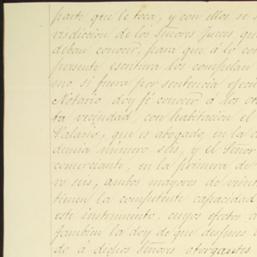 parte que le toca, y con ellos se s
risdiccion de los Señores jueces que
deban conocer, para que á lo con
presente escritura los compelan
mo si fuera por sentencia
Notario doy fé conocer á los oto
ta vecindad, con habitacion el
Valario, que es abogado, en la c
demia número seis, y el Señor
comerciante, en la primera de
ro seis, ambos mayores de veint
tienen la competente capacidad
este instrumento, cuyos efectos
tambien la doy de que despues
do á dichos Señores otorgantes